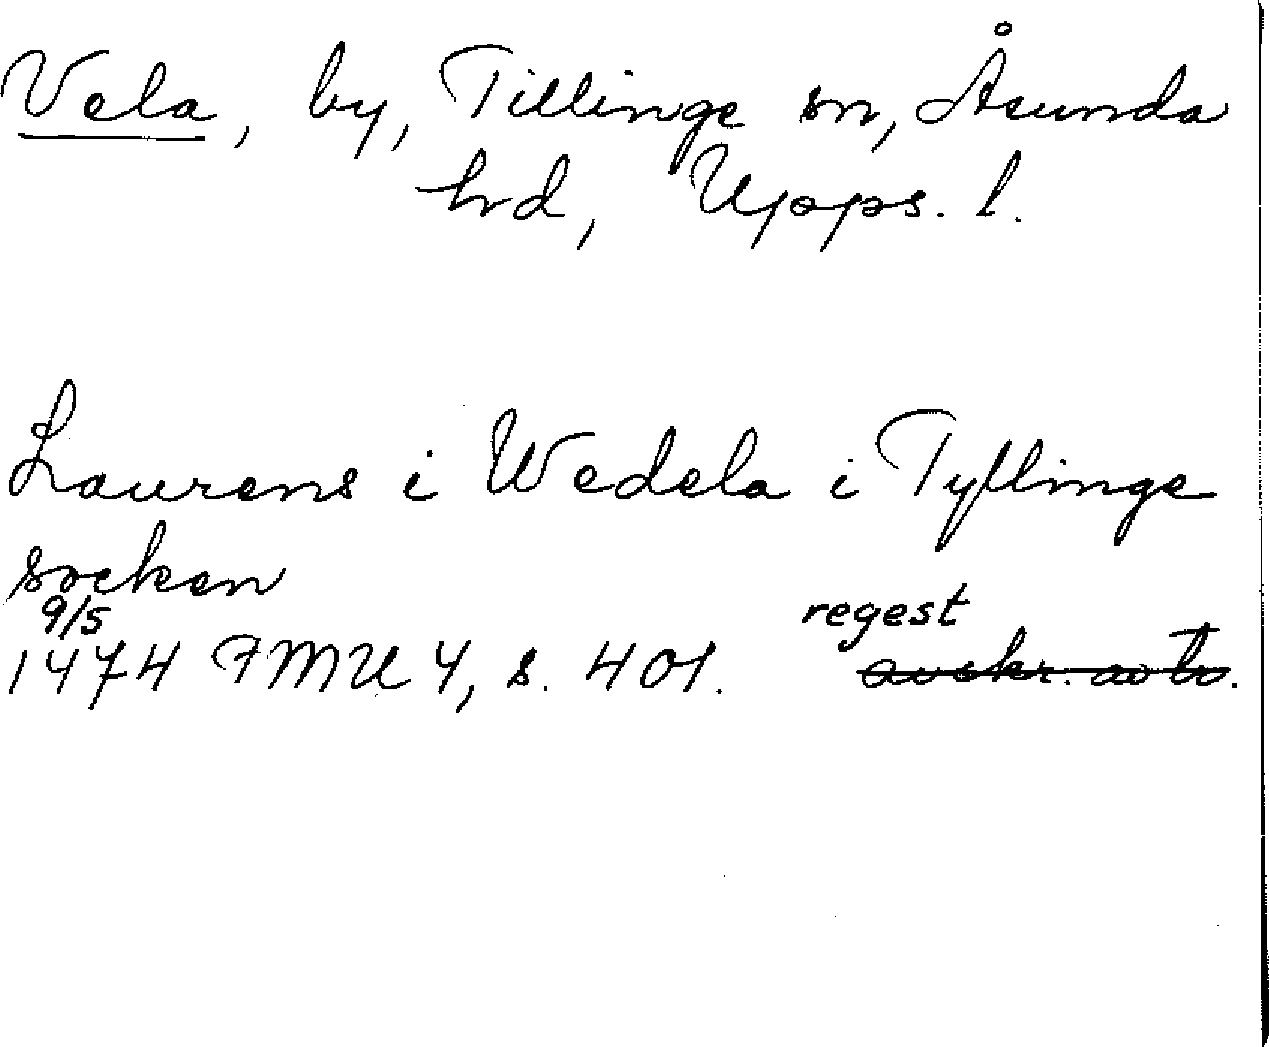 Vela, by, Tillinge sn, Åsunda
hd, Upps. l.
Laurens i Wedela i Tyllinge
socken
9/5 regest
1474 FMU 4, s. 401. avskr. av to.